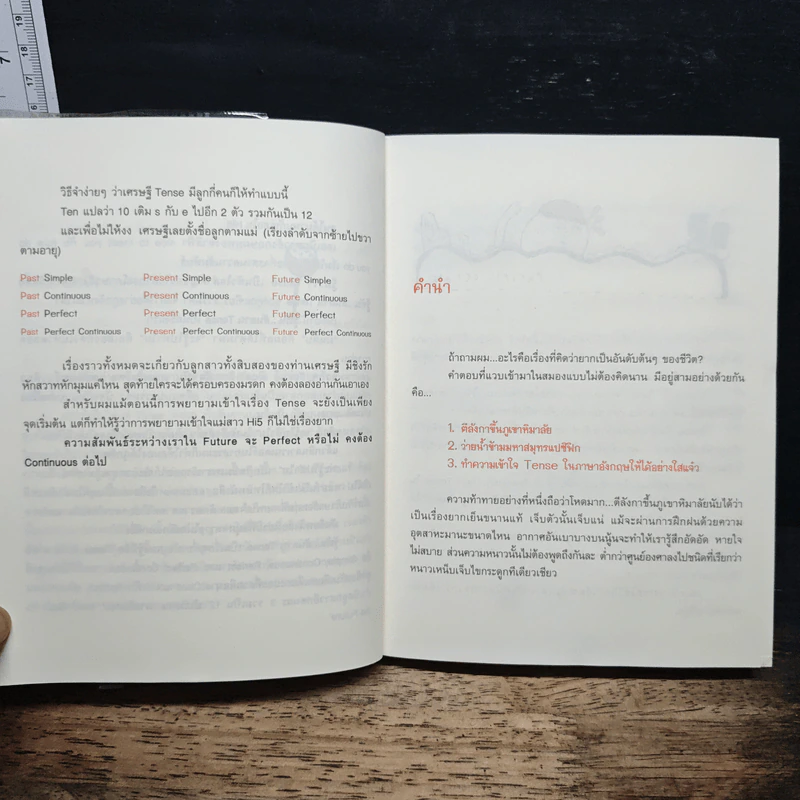 วิธีจำง่ายๆ ว่าเศรษฐี Tense มีลูกกี่คนก็ให้ทำแบบนี้
Ten แปลว่า 10 เติม s กับ e ไปอีก 2 ตัว รวมกันเป็น 12
และเพื่อไม่ให้งง เศรษฐีเลยตั้งชื่อลูกตามแม่ (เรียงลำดับจากซ้ายไปขวา
ตามอายุ)
Past Simple Present Simple Future Simple
Past Continuous Present Continuous Future Continuous
Past Perfect Present Perfect Future Perfect
Past Perfect Continuous Present Perfect Continuous Future Perfect Continuous
เรื่องราวทั้งหมดจะเกี่ยวกับลูกสาวทั้งสิบสองของท่านเศรษฐี มีชิงรัก
หักสวาทหักมุมแค่ไหน สุดท้ายใครจะได้ครอบครองมรดก คงต้องลองอ่านกันเอาเอง
สำหรับผมแม้ตอนนี้การพยายามเข้าใจเรื่อง Tense จะยังเป็นเพียง
จุดเริ่มต้น แต่ก็ทำให้รู้ว่าการพยายามเข้าใจแม่สาว Hi5 ก็ไม่ใช่เรื่องยาก
ความสัมพันธ์ระหว่างเราใน Future จะ Perfect หรือไม่ คงต้อง
Continuous ต่อไป
คำนำ
ถ้าถามผม...อะไรคือเรื่องที่คิดว่ายากเป็นอันดับต้นๆ ของชีวิต?
คำตอบที่แวบเข้ามาในสมองแบบไม่ต้องคิดนาน มีอยู่สามอย่างด้วยกัน
คือ...
1. ตีลังกาขึ้นภูเขาหิมาลัย
2. ว่ายน้ำข้ามมหาสมุทรแปซิฟิก
3. ทำความเข้าใจ Tense ในภาษาอังกฤษให้ได้อย่างใสแจ๋ว
ความท้าทายอย่างที่หนึ่งถือว่าโหดมาก...ตีลังกาขึ้นภูเขาหิมาลัยนับได้ว่า
เป็นเรื่องยากเย็นขนานแท้ เจ็บตัวนั้นเจ็บแน่ แม้จะผ่านการฝึกฝนด้วยความ
อุตสาหะมานะขนาดไหน อากาศอันเบาบางบนนู้นจะทำให้เรารู้สึกอัดอัด หายใจ
ไม่สบาย ส่วนความหนาวนั้นไม่ต้องพูดถึงกันละ ต่ำกว่าศูนย์องศาลงไปชนิดที่เรียกว่า
หนาวเหน็บเจ็บไขกระดูกทีเดียวเชียว
7
19
18
17
6